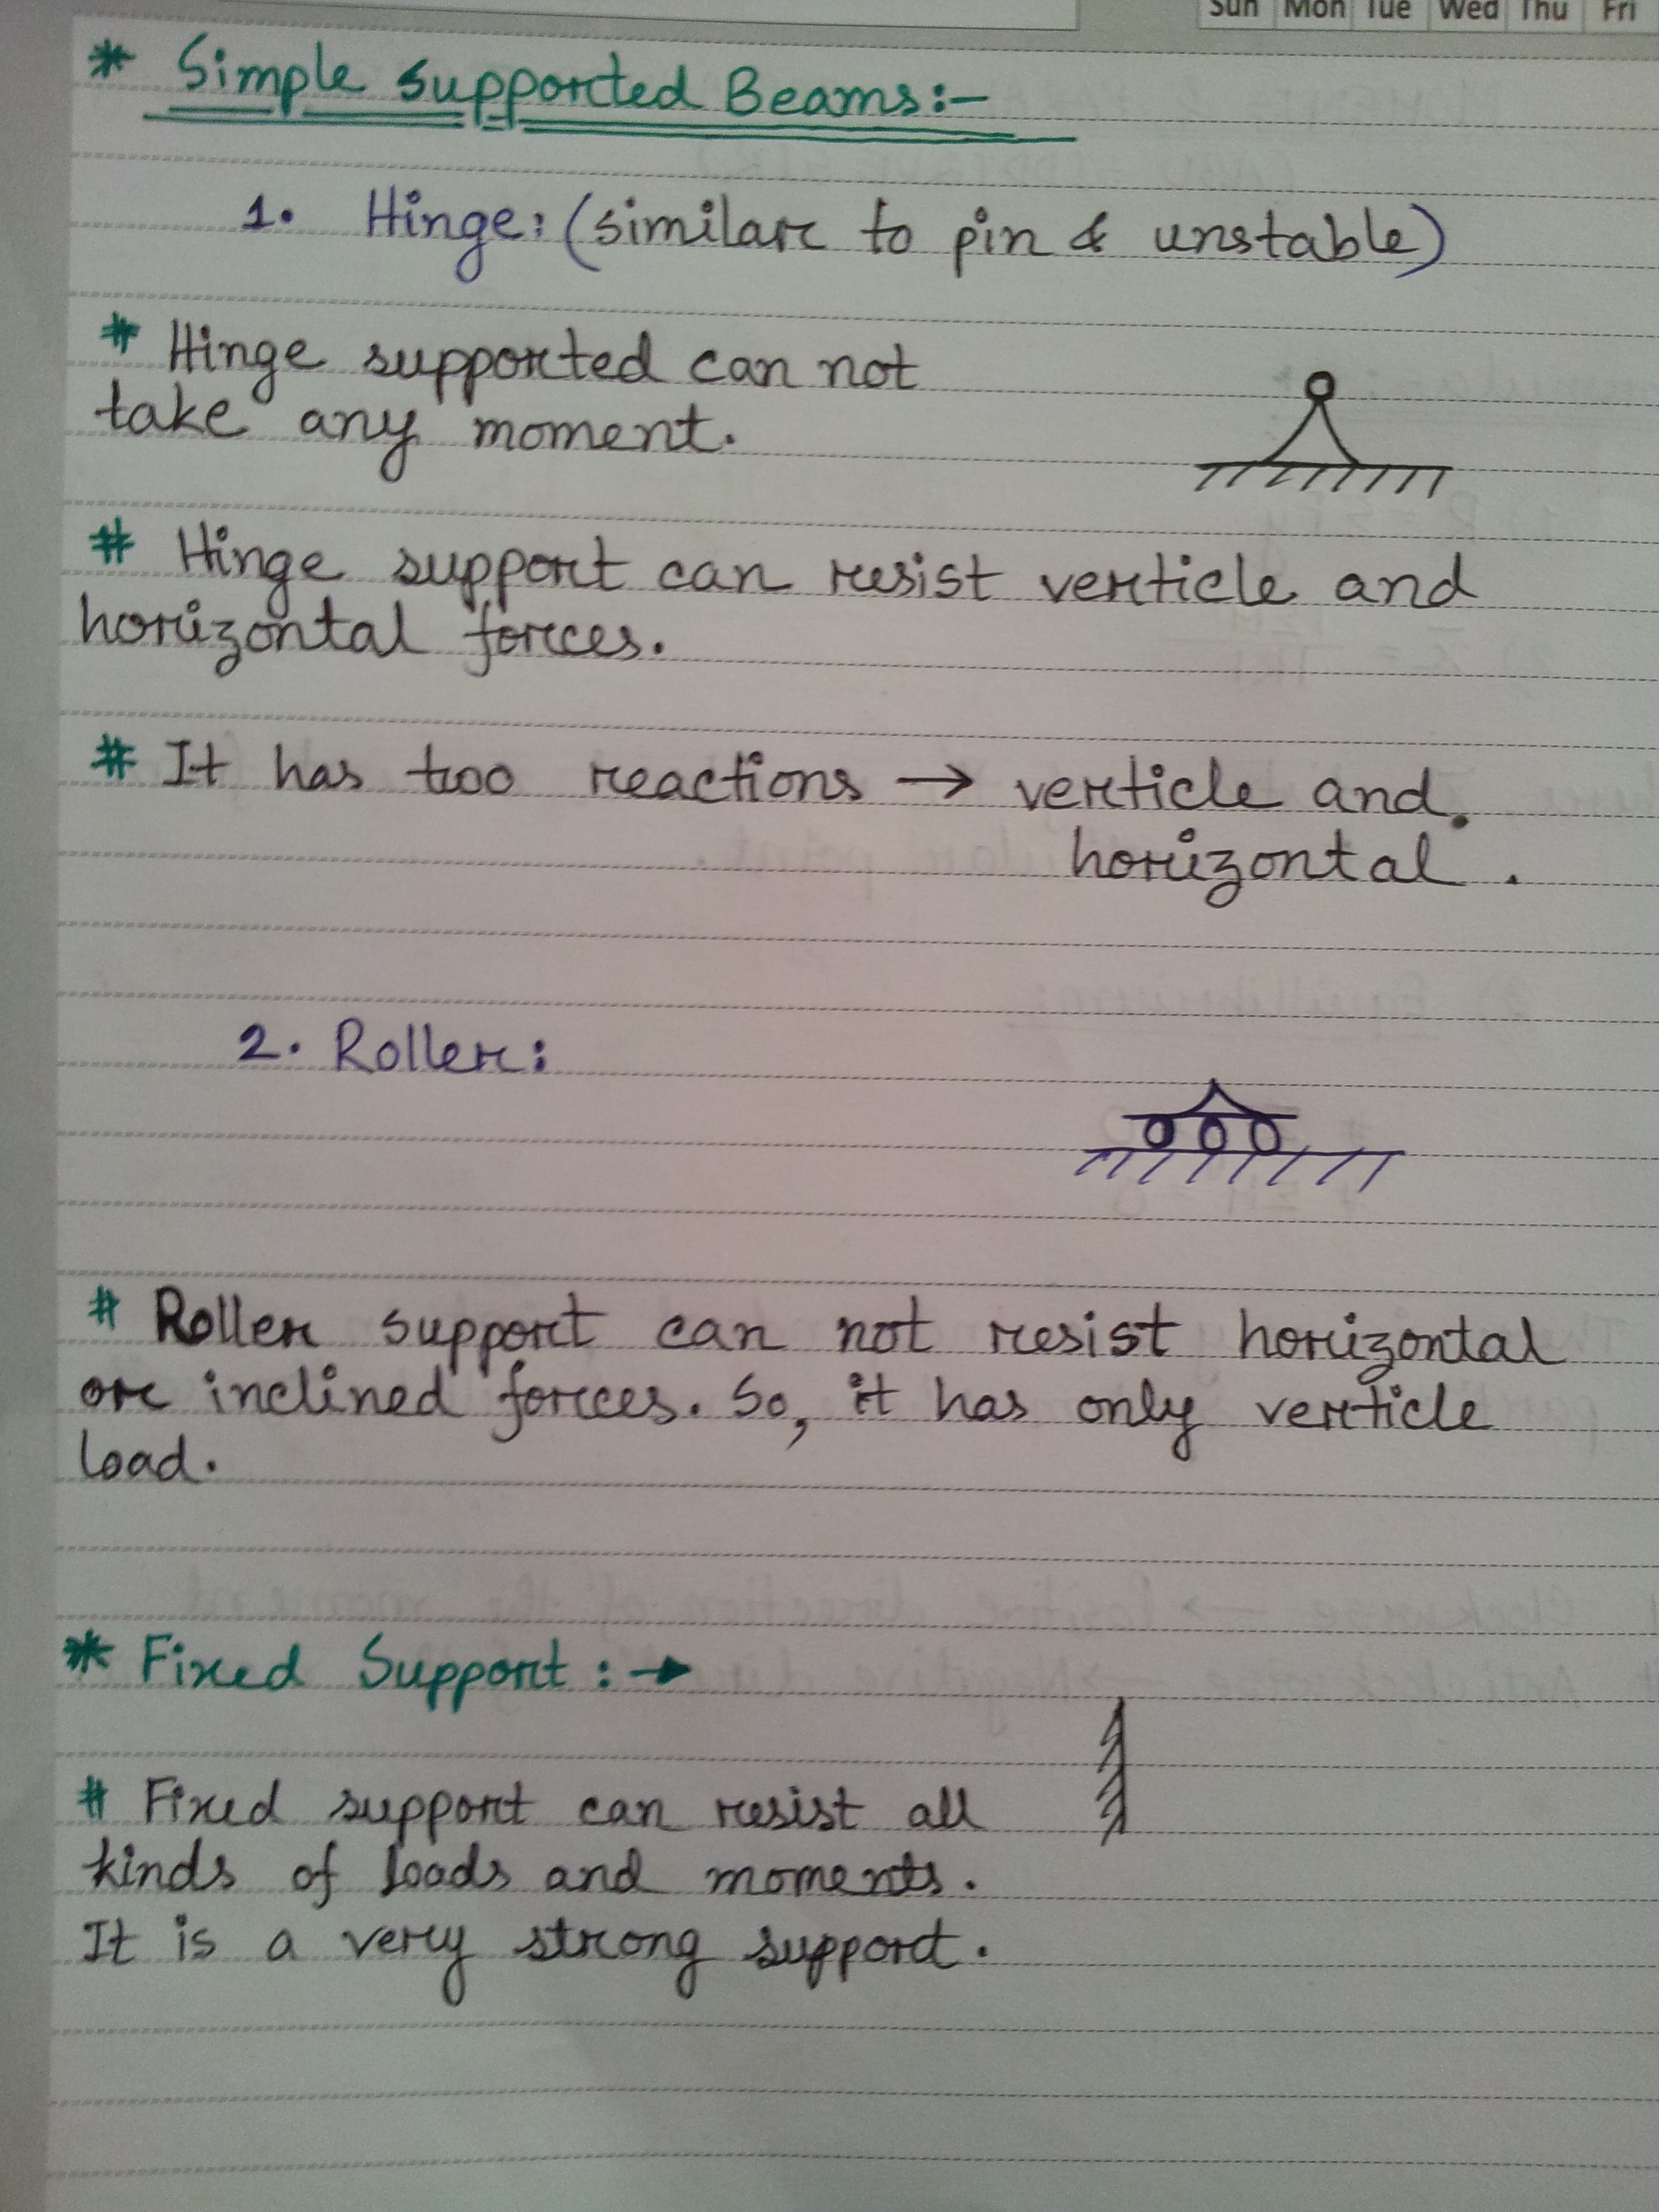 Sun Mon Tue Wed Thu Fri
* Simple Supported Beams:-
1. Hinge: (similar to pin & unstable)
# Hinge supported can not
take any moment.
# Hinge support can resist verticle and
horizontal forces.
# It has two reactions → verticle and
horizontal.
2. Roller:
# Roller support can not resist horizontal
or inclined forces. So, it has only verticle
load.
* Fixed Support :→
# Fixed support can resist all
kinds of loads and moments.
It is a very strong support.